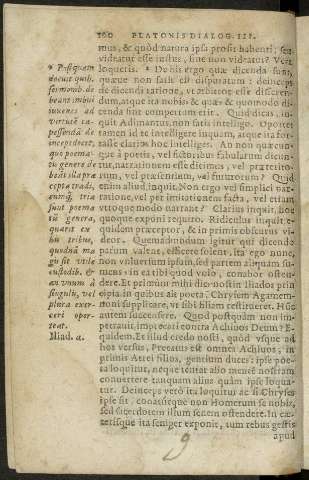 160 PLATONIS DIALOG. III.
mus, & quòd natura ipsa prosit habenti: seu
videatur esse iustus, siue non videatur? Vera
loqueris. De his ergo quæ dicenda sunt,
quæue non satis est disputatum: deinceps
de dicendi ratione, vt mihi videtur, disseren-
dum, atque ita nobis & quæ & quomodo di-
cenda sint compertum erit. Quid dicas, in-
quit Adimantus, non satis intelligo. Oportet
tamen id te intelligere inquam, atque ita for-
tasse clarius hoc intelliges. An non quæcun-
que à poetis, vel fictoribus fabularum dicun-
tur, narrationem esse dicimus, vel præterito-
rum, vel præsentium, vel futurorum? Quid
enim aliud, inquit. Non ergo vel simplici nar-
ratione, vel per imitationem facta, vel etiam
vtroque modo narrant? Clarius inquit, hoc
quoque exponi requiro. Ridiculus inquit e-
quidem præceptor, & in primis obscurus vi-
deor. Quemadmodum igitur qui dicendo
parum valent, efficere solent, ita ego nunc,
non vniuersum ipsum, sed partem aliquam su-
mens, in ea tibi quod volo, conabor osten-
dere. Et primùm mihi dic: nostin Iliados prin
cipia, in quibus ait poeta, Chrysem Agamem-
noni supplicare, vt sibi filiam restitueret. Hūc
autem succensere. Quod postquàm non im-
petrauit, imprecari contra Achiuos Deum? E-
quidem. Et illud credo nosti, quòd vsque ad
hos versus, Precatus est omnes Achiuos, in
primis Atrei filios, gentium duces: ipse poe-
ta loquitur, neque tentat alio mentē nostram
conuertere tanquam alius quàm ipse loqua-
tur. Deinceps verò ita loquitur ac si Chryses
ipse sit: conatúrque non Homerum se nobis,
sed sacerdotem illum senem ostendere. In cæ-
terísque ita fermè exponit, tum rebus gestis
apud
* Postquam
docuit quib.
sermonib. de
beant imbui
iuuenes ad
virtutē ca-
pessendā de
inceps docet,
quo poema-
tū genere de
beāt illa præ
cepta tradi,
tria
sunt poema
tū genera,
quæris ex
his tribus,
quodnā ma
gis sit vtile
custodib. &
an vnum à
singulis, vel
plura exer-
ceri opor-
teat.
Iliad. a.
9